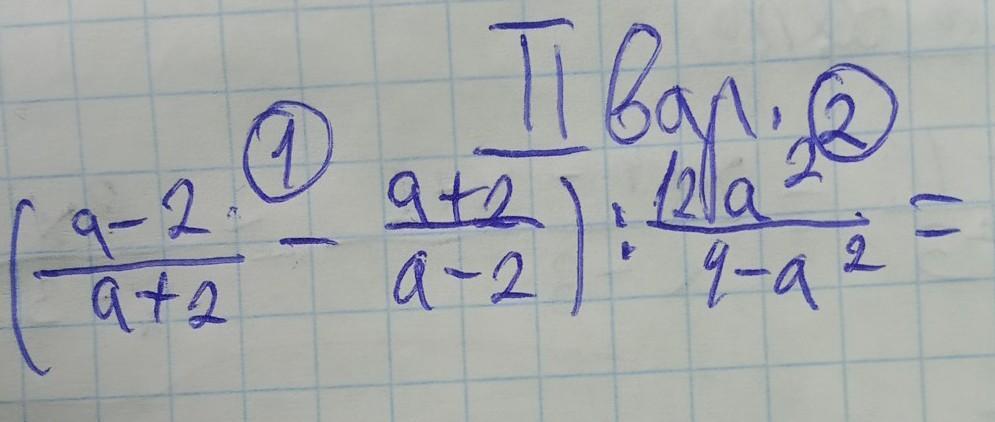 II вар.
(\frac{a-2}{a+2} ① - \frac{a+2}{a-2}) : ② \frac{12a^2}{4-a^2} =